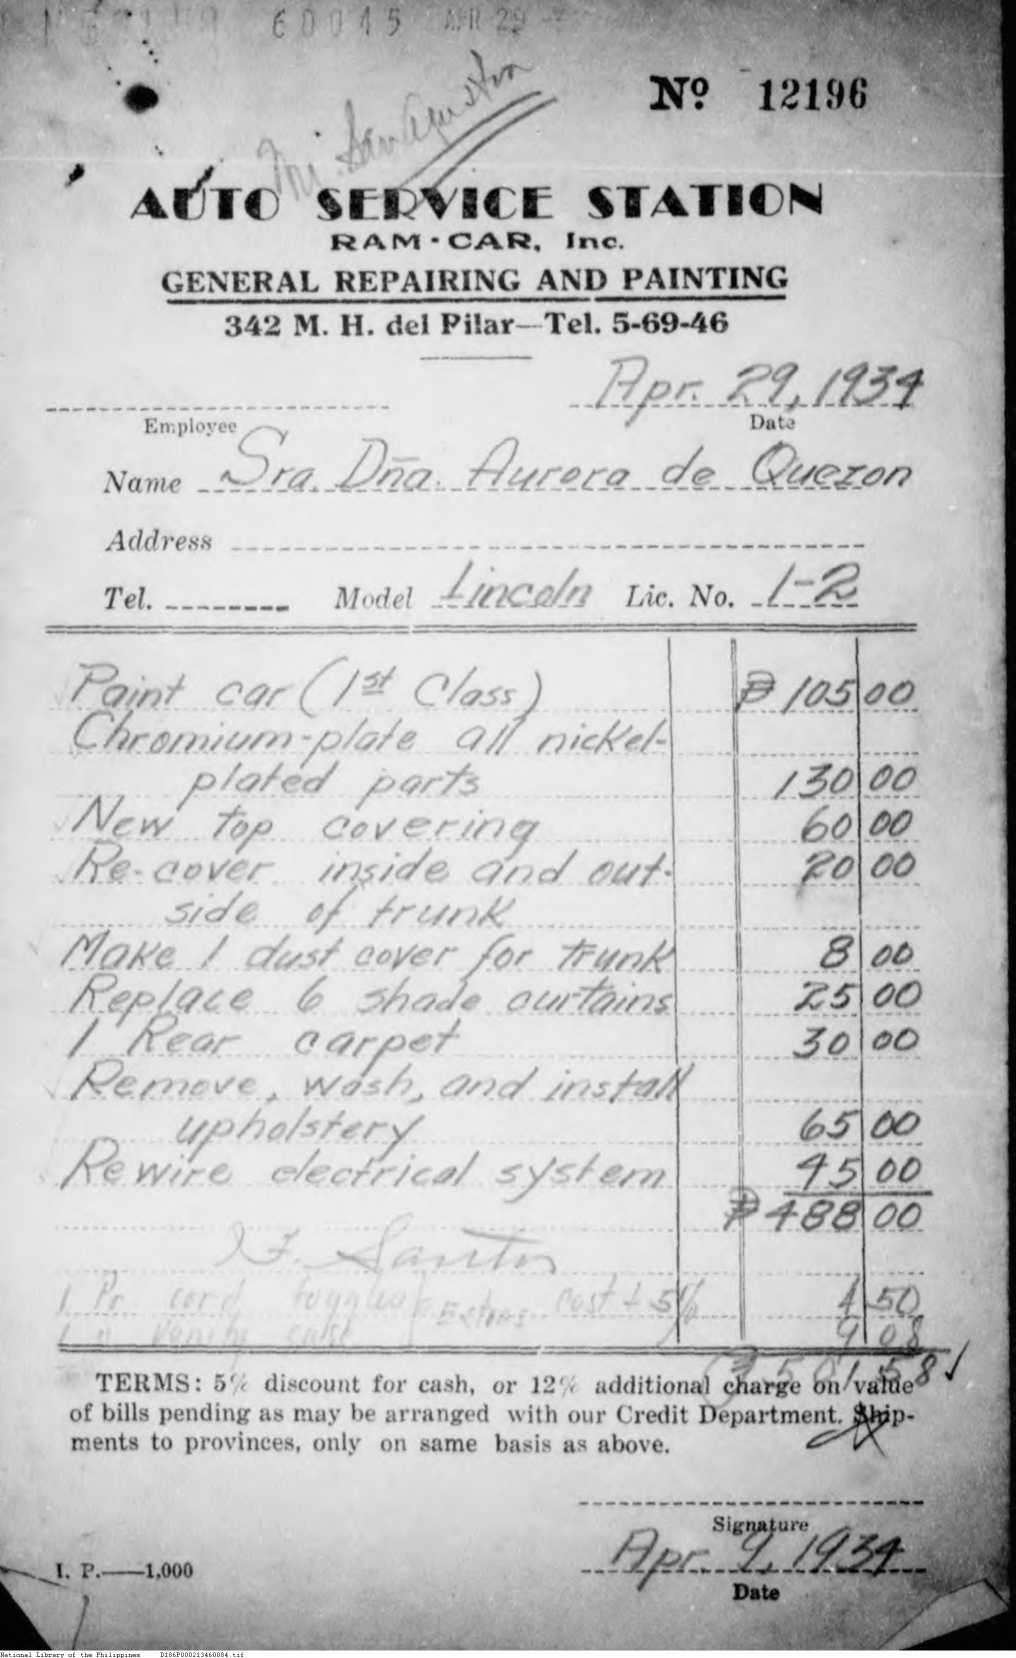 60045 APR 29
Mr. San Agustin
Nº 12196
AUTO SERVICE STATION
RAM-CAR, Inc.
GENERAL REPAIRING AND PAINTING
342 M. H. del Pilar—Tel. 5-69-46
Apr. 29, 1934
Employee Date
Name Sra. Dña. Aurora de Quezon
Address
Tel. Model Lincoln Lic. No. 1-2
Paint car (1st Class) ₱ 105 00
Chromium-plate all nickel-
plated parts 130 00
New top covering 60 00
Re-cover inside and out- 20 00
side of trunk
Make 1 dust cover for trunk 8 00
Replace 6 shade curtains 25 00
1 Rear carpet 30 00
Remove, wash, and install
upholstery 65 00
Rewire electrical system 45 00
₱ 488 00
Santos
1 Pr cord toggles Extras cost + 5% 4 50
1 " Vanity case 9 08
501.58
TERMS: 5% discount for cash, or 12% additional charge on value
of bills pending as may be arranged with our Credit Department. Ship-
ments to provinces, only on same basis as above.
Signature
Apr. 9, 1934
I. P.—1,000
Date
National Library of the Philippines D186P000213460084.tif